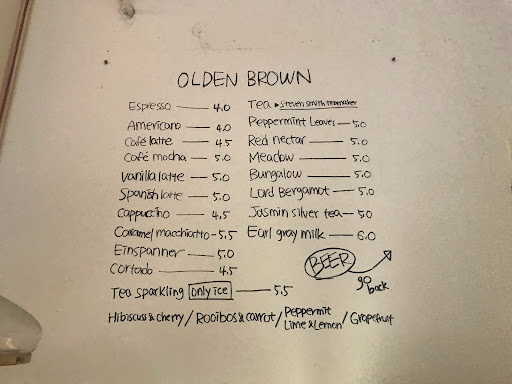 OLDEN BROWN
Espresso 4.0
Americano 4.0
Café latte 4.5
Café mocha 5.0
Vanilla latte 5.0
Spanish latte 5.0
Cappuccino 4.5
Caramel macchiatto 5.5
Einspanner 5.0
Cortado 4.5
Tea Steven Smith teamaker
Peppermint Leaves 5.0
Red nectar 5.0
Meadow 5.0
Bungalow 5.0
Lord Bergamot 5.0
Jasmin silver tea 50
Earl gray milk 6.0
BEER
go
back
Tea sparkling only ice 5.5
Hibiscus & cherry / Rooibos & carrot / Peppermit Lime & Lemon / Grapefruit